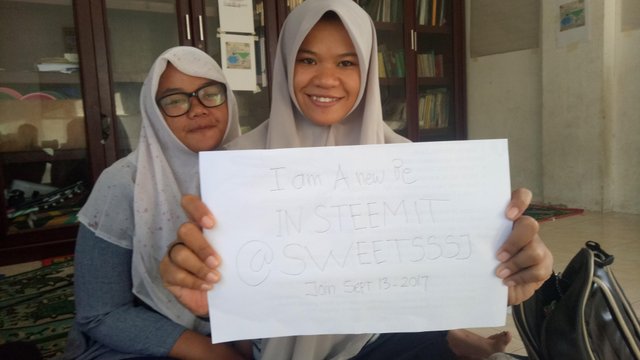 I am A new Be
IN STEEMIT
@SWEETSSSJ
Jam Sept 13-2017